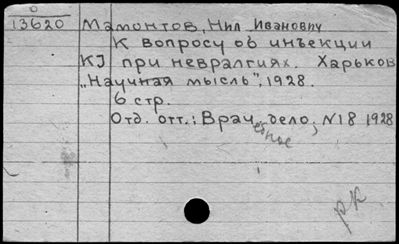 0
13620 Мамонтов, Нил Иванович
К вопросу об инъекции
KJ при невралгиях. Харьков
„Научная мысль", 1928.
6 стр.
Отд. отт.: Врач. дело, N18 1928
ебное
рк